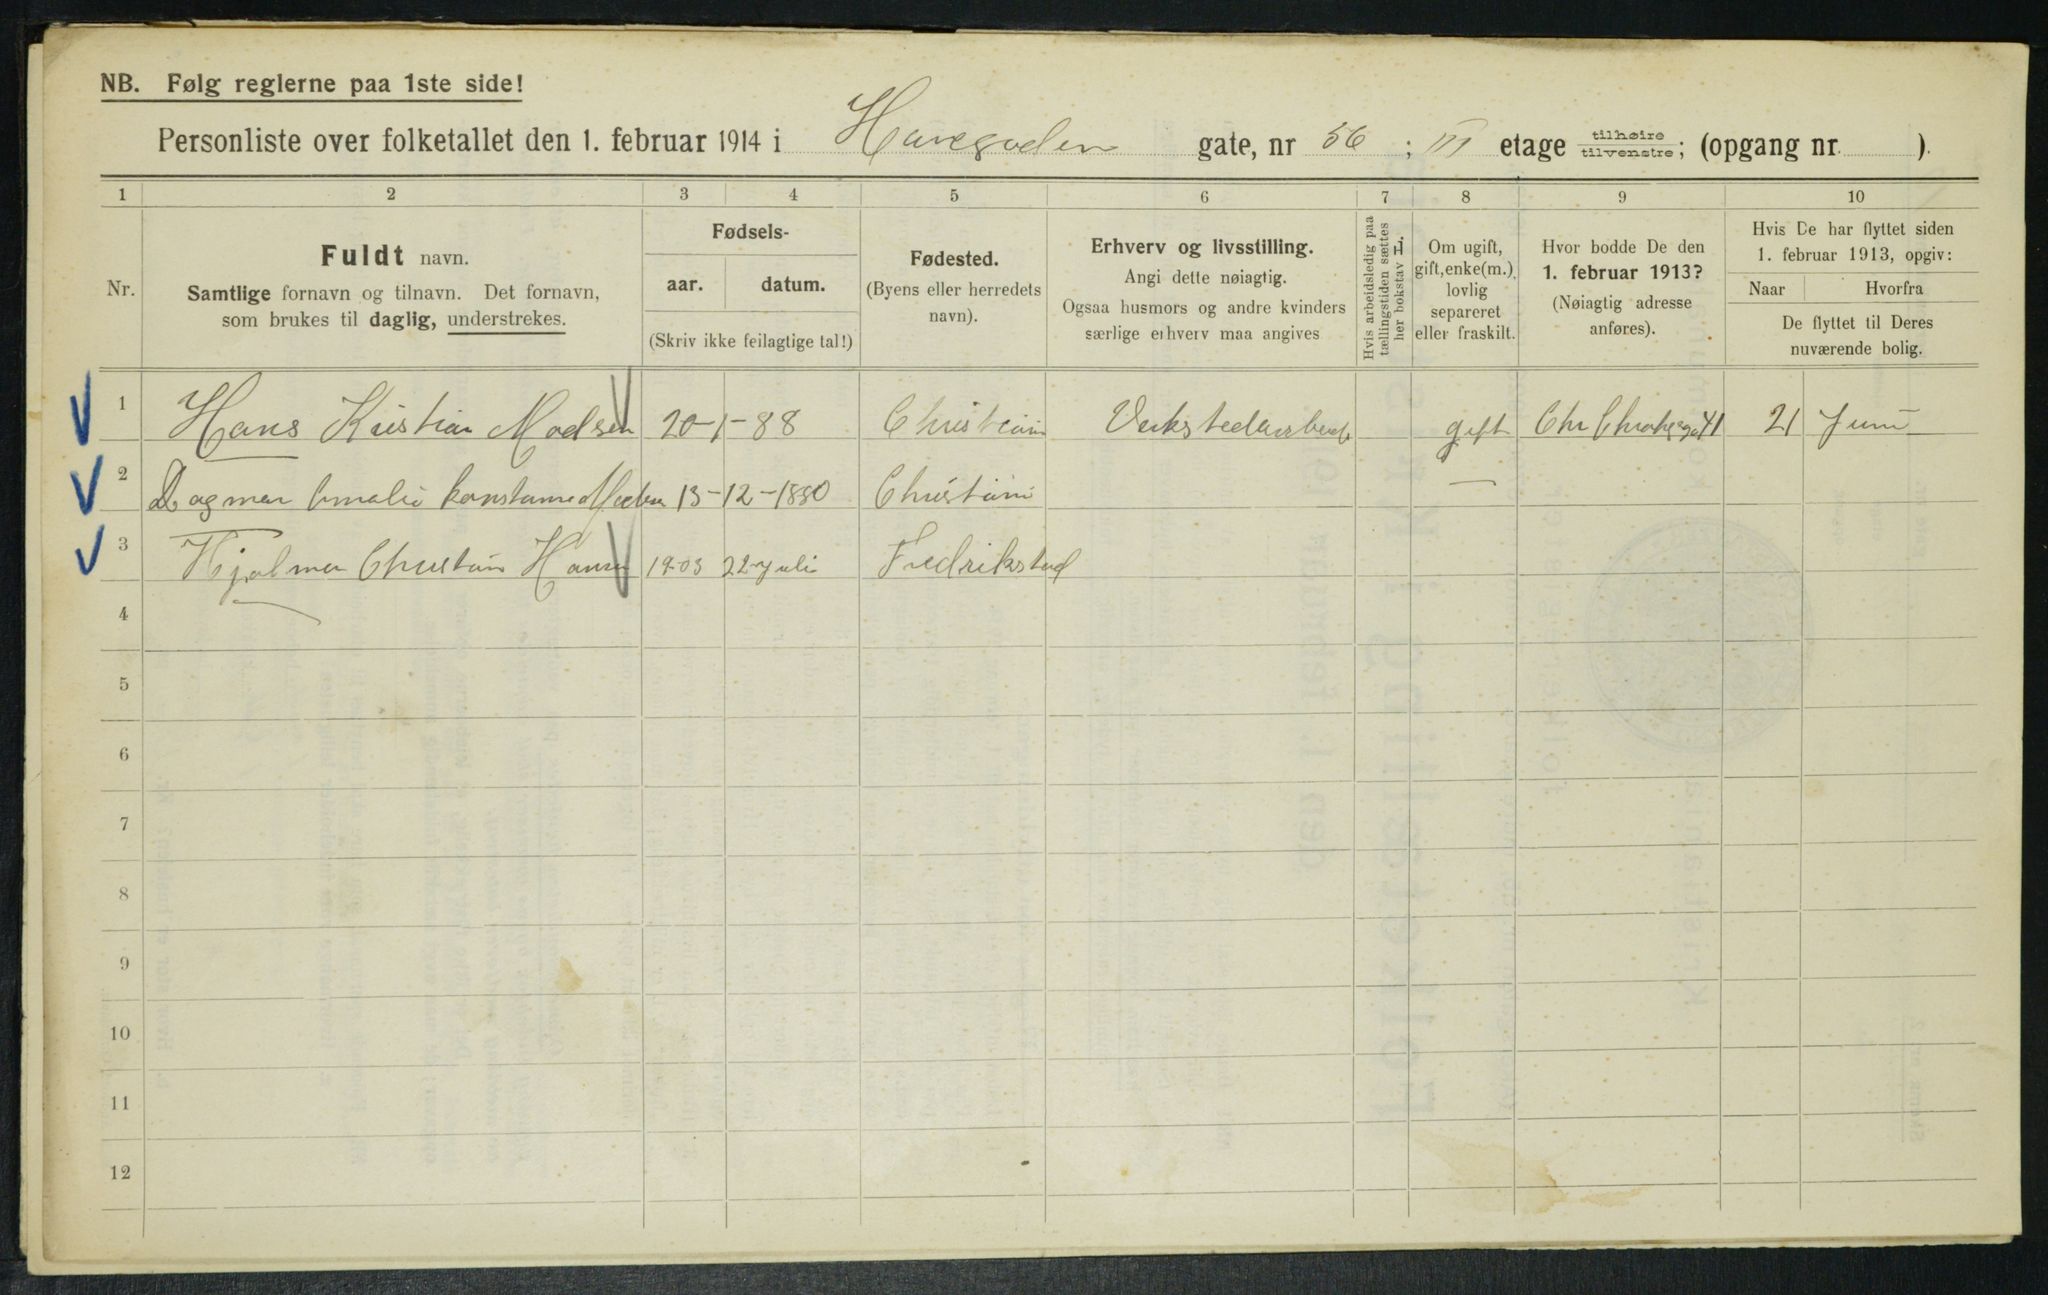 NB. Følg reglerne paa 1ste side!
Personliste over folketallet den 1. februar 1914 i Havegaden gate, nr 56; III etage tilhøire/tilvenstre; (opgang nr. ).
1 2 3 4 5 6 7 8 9 10
Nr.
Fuldt navn.
Samtlige fornavn og tilnavn. Det fornavn,
som brukes til daglig, understrekes.
Fødsels-
aar. datum.
(Skriv ikke feilagtige tal!)
Fødested.
(Byens eller herredets
navn).
Erhverv og livsstilling.
Angi dette nøiagtig.
Ogsaa husmors og andre kvinders
særlige erhverv maa angives
Hvis arbeidsledig paa
tællingstiden sættes
her bokstav H.
Om ugift,
gift, enke(m.),
lovlig
separeret
eller fraskilt.
Hvor bodde De den
1. februar 1913?
(Nøiagtig adresse
anføres).
Hvis De har flyttet siden
1. februar 1913, opgiv:
Naar Hvorfra
De flyttet til Deres
nuværende bolig.
1 Hans Kristian Madsen 20-1-88 Christiania gift 21 Juni
2 Dagmar Amalie 13-12-1880 Christiania —
3 Hjalmar Christian Hansen 1903 22 juli Fredrikstad
4
5
6
7
8
9
10
11
12